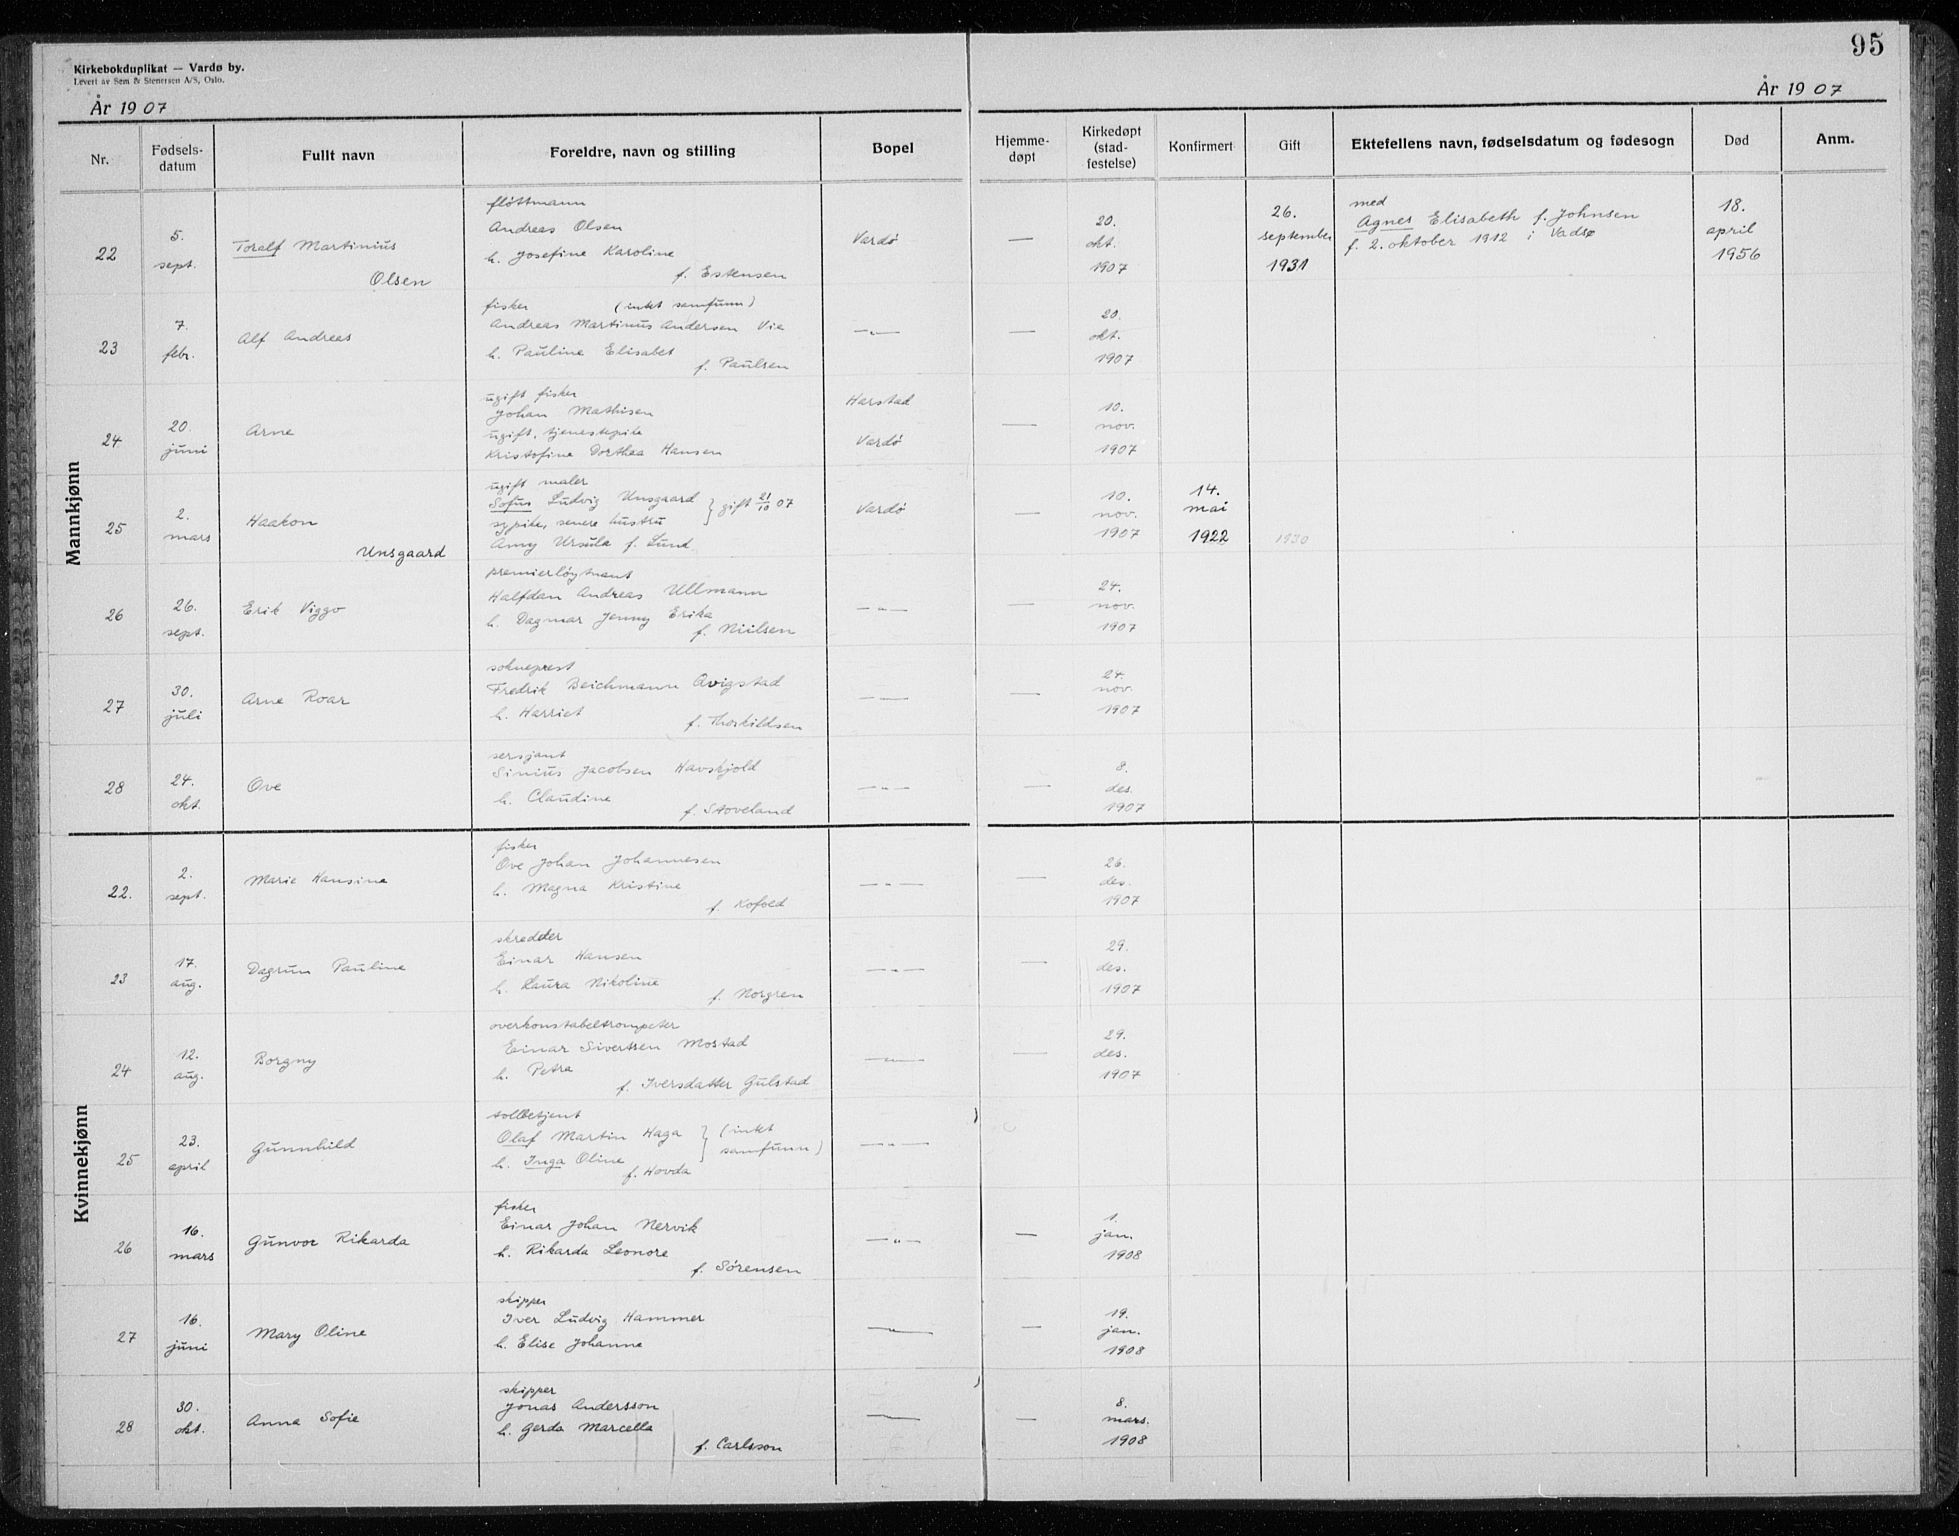 95
Kirkebokduplikat — Vardø by.
Levert av Sem & Stenersen A/S, Oslo.
År 1907
År 1907
Nr.
Fødsels-
datum
Fullt navn
Foreldre, navn og stilling
Bopel
Hjemme-
døpt
Kirkedøpt
(stad-
festelse)
Konfirmert
Gift
Ektefellens navn, fødselsdatum og fødesogn
Død
Anm.
Mannkjønn
22
5.
sept.
Toralf Martinius
Olsen
fløttmann
Andreas Olsen
h. Josefine Karoline
f. Estensen
Vardø
—
20.
okt.
1907
26.
september
1931
med
Agnes Elisabeth f. Johnsen
f. 2. oktober 1912 i Vadsø
18.
april
1956
23
7.
febr.
Alf Andreas
fisker (intet samfunn)
Andreas Martinus Andersen Vie
h. Pauline Elisabet
f. Paulsen
—"—
—
20.
okt.
1907
24
20
juni
Arne
ugift fisker
Johan Mathisen
ugift, tjenestepike
Kristofine Dorthea Hansen
Harstad
Vardø
—
10.
nov.
1907
25
2.
mars
Haakon
Unsgaard
ugift maler
Sofus Ludvig Unsgaard } gift 21/10 07
sypike, senere hustru
Amy Ursula f. Lund
Vardø
—
10.
nov.
1907
14.
mai
1922
1930
26
26.
sept.
Erik Viggo
premierløytnant
Halfdan Andreas Ullmann
h. Dagmar Jenny Erika
f. Nielsen
—"—
—
24.
nov.
1907
27
30.
juli
Arne Roar
sokneprest
Fredrik Beichmann Qvigstad
h. Harriet
f. Thorkildsen
—"—
—
24.
nov.
1907
28
24.
okt.
Ove
sersjant
Sinius Jacobsen Havskjold
h. Claudine
f. Stoveland
—"—
—
8.
des.
1907
Kvinnekjønn
22.
2.
sept.
Marie Hansine
fisker
Ove Johan Johannesen
h. Magna Kristine
f. Kofoed
—"—
—
26.
des.
1907
23
17.
aug.
Dagrun Pauline
skredder
Einar Hansen
h. Laura Nikoline
f. Norgren
—"—
—
29.
des.
1907
24
12.
aug.
Borgny
overkonstabeltrompeter
Einar Sivertsen Mostad
h. Petra
f. Iversdatter Gulstad
—"—
—
29.
des.
1907
25
23.
april
Gunnhild
tollbetjent
Olaf Martin Haga } (intet
h. Inga Oline samfunn)
f. Hovda
—"—
26
16.
mars
Gunvor Rikarda
fisker
Einar Johan Nervik
h. Rikarda Leonore
f. Sørensen
—"—
—
1.
jan.
1908
27
16.
juni
Mary Oline
skipper
Iver Ludvig Hammer
h. Elise Johanne
—"—
—
19.
jan.
1908
28
30.
okt.
Anna Sofie
skipper
Jonas Andersson
h. Gerda Marcella
f. Carlsson
—"—
—
8.
mars.
1908